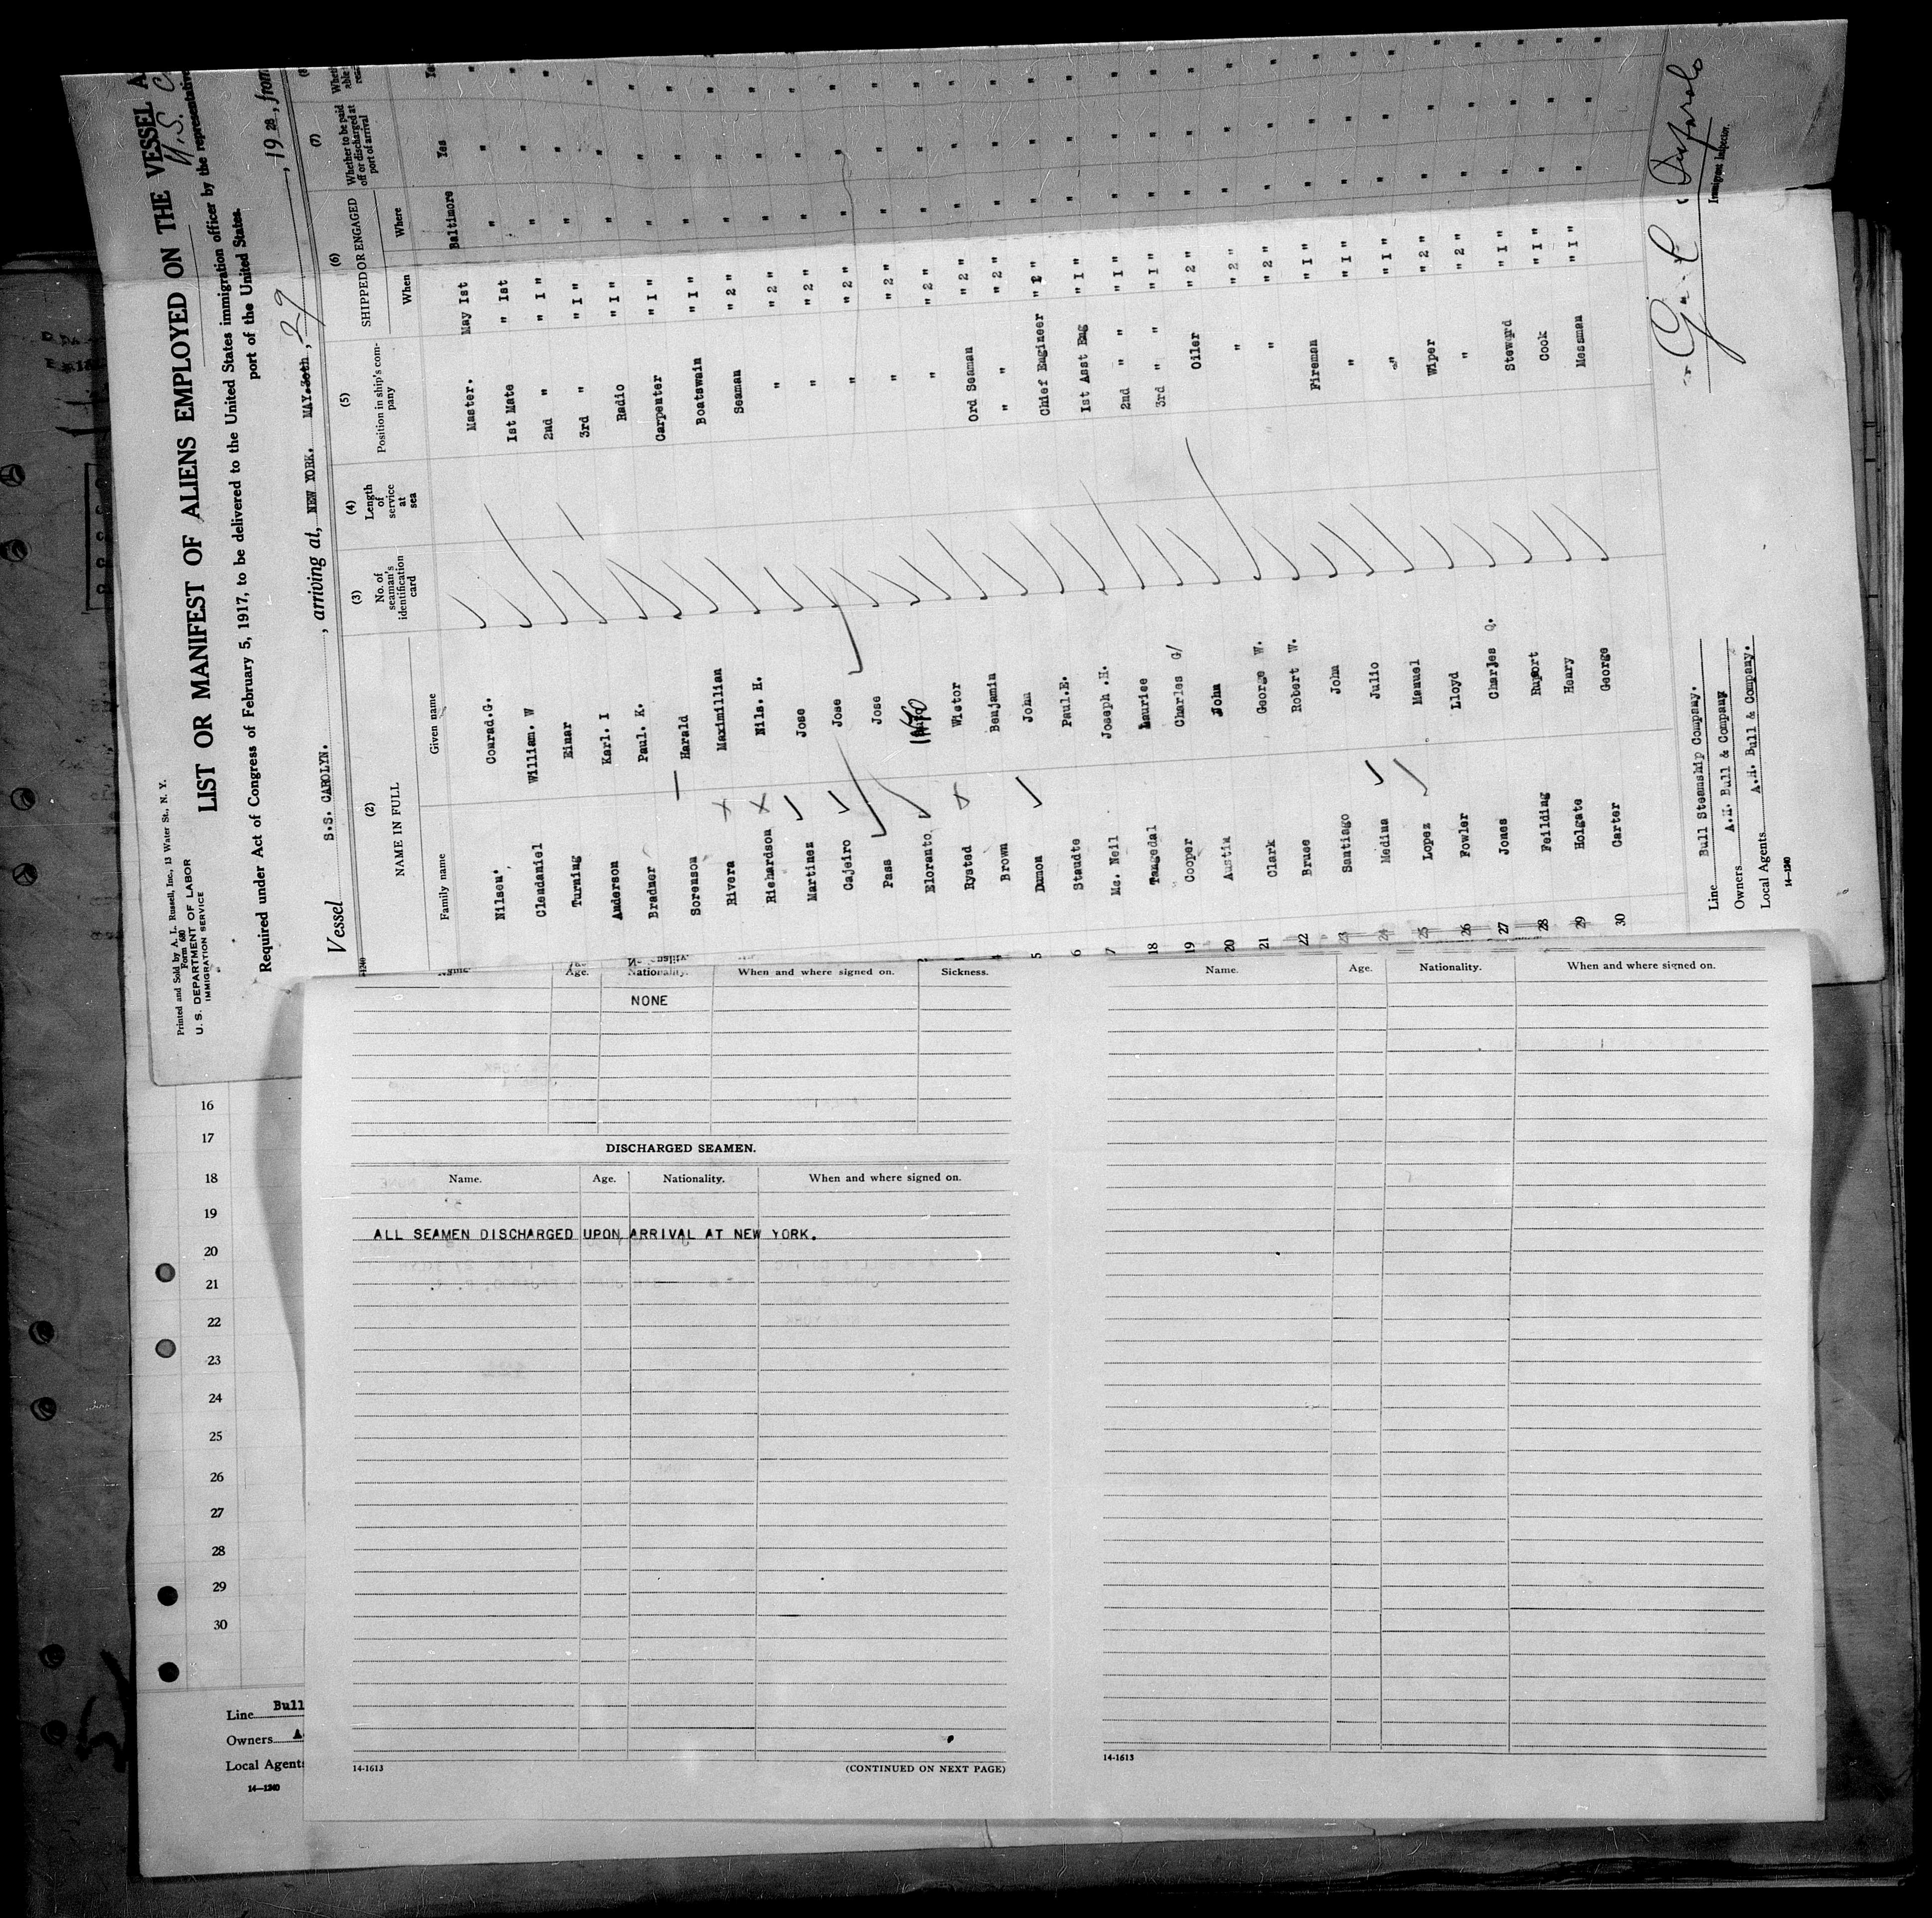 Printed and Sold by A. L. Russell, Inc., 13 Water St., N. Y.
Form 680
U. S. DEPARTMENT OF LABOR
IMMIGRATION SERVICE
LIST OR MANIFEST OF ALIENS EMPLOYED ON THE VESSEL A
U.S. C
Required under Act of Congress of February 5, 1917, to be delivered to the United States immigration officer by the representative
port of the United States.
Vessel S.S. CAROLYN. , arriving at, NEW YORK. MAY.30th , 29 , 1928, from
(2) (3) (4) (5) (6) (7)
NAME IN FULL No. of seaman's identification card Length of service at sea Position in ship's company SHIPPED OR ENGAGED Whether to be paid off or discharged at port of arrival
Family name Given name When Where
Nilsen. Conrad.G. Master. May Ist Baltimore Yes
Clendaniel William. W Ist Mate " Ist " "
Turning Einar 2nd " " I " " "
Anderson Karl. I 3rd " " I " " "
Bradner Paul. K. Radio " I " " "
Sorenson Harald Carpenter " I " " "
Rivera Maximillian Boatswain " I " " "
Richardson Nils. H. Seaman " 2 " " "
Martinez Jose " " 2 " " "
Cajeiro Jose " " 2 " " "
Pass Jose " " 2 " " "
Eloranto " " 2 " " "
Rysted Wictor " " 2 " " "
Brown Benjamin Ord Seaman " 2 " " "
5 Dunon John " " " 2 " " "
6 Staudte Paul.E. Chief Engineer " I " " "
7 Mc. Neil Joseph .H. Ist Asst Eng " I " " "
18 Taagedal 2nd " " " I " " "
19 Cooper Charles G/ 3rd " " " I " " "
20 Austin John Oiler " 2 " " "
21 Clark George W. " " 2 " " "
22 Bruce Robert W. " " 2 " " "
23 Santiago John Fireman " I " " "
24 Medina Julio " " I " " "
25 Lopez Manuel " " I " " "
26 Fowler Lloyd Wiper " 2 " " "
27 Jones Charles Q. " " 2 " " "
28 Feilding Rupert Steward " I " " "
29 Holgate Henry Cook " I " " "
30 Carter George Messman " I " " "
Line Bull Steamship Company.
Owners A.H. Bull & Company
Local Agents A.H. Bull & Company.
14-1240
Immigrant Inspector.
Name. Age. Nationality. When and where signed on. Sickness.
NONE
DISCHARGED SEAMEN.
Name. Age. Nationality. When and where signed on.
ALL SEAMEN DISCHARGED UPON ARRIVAL AT NEW YORK.
14-1613 (CONTINUED ON NEXT PAGE)
Name. Age. Nationality. When and where signed on.
14-1613
16
17
18
19
20
21
22
23
24
25
26
27
28
29
30
Line Bull
Owners A
Local Agents
14—1240